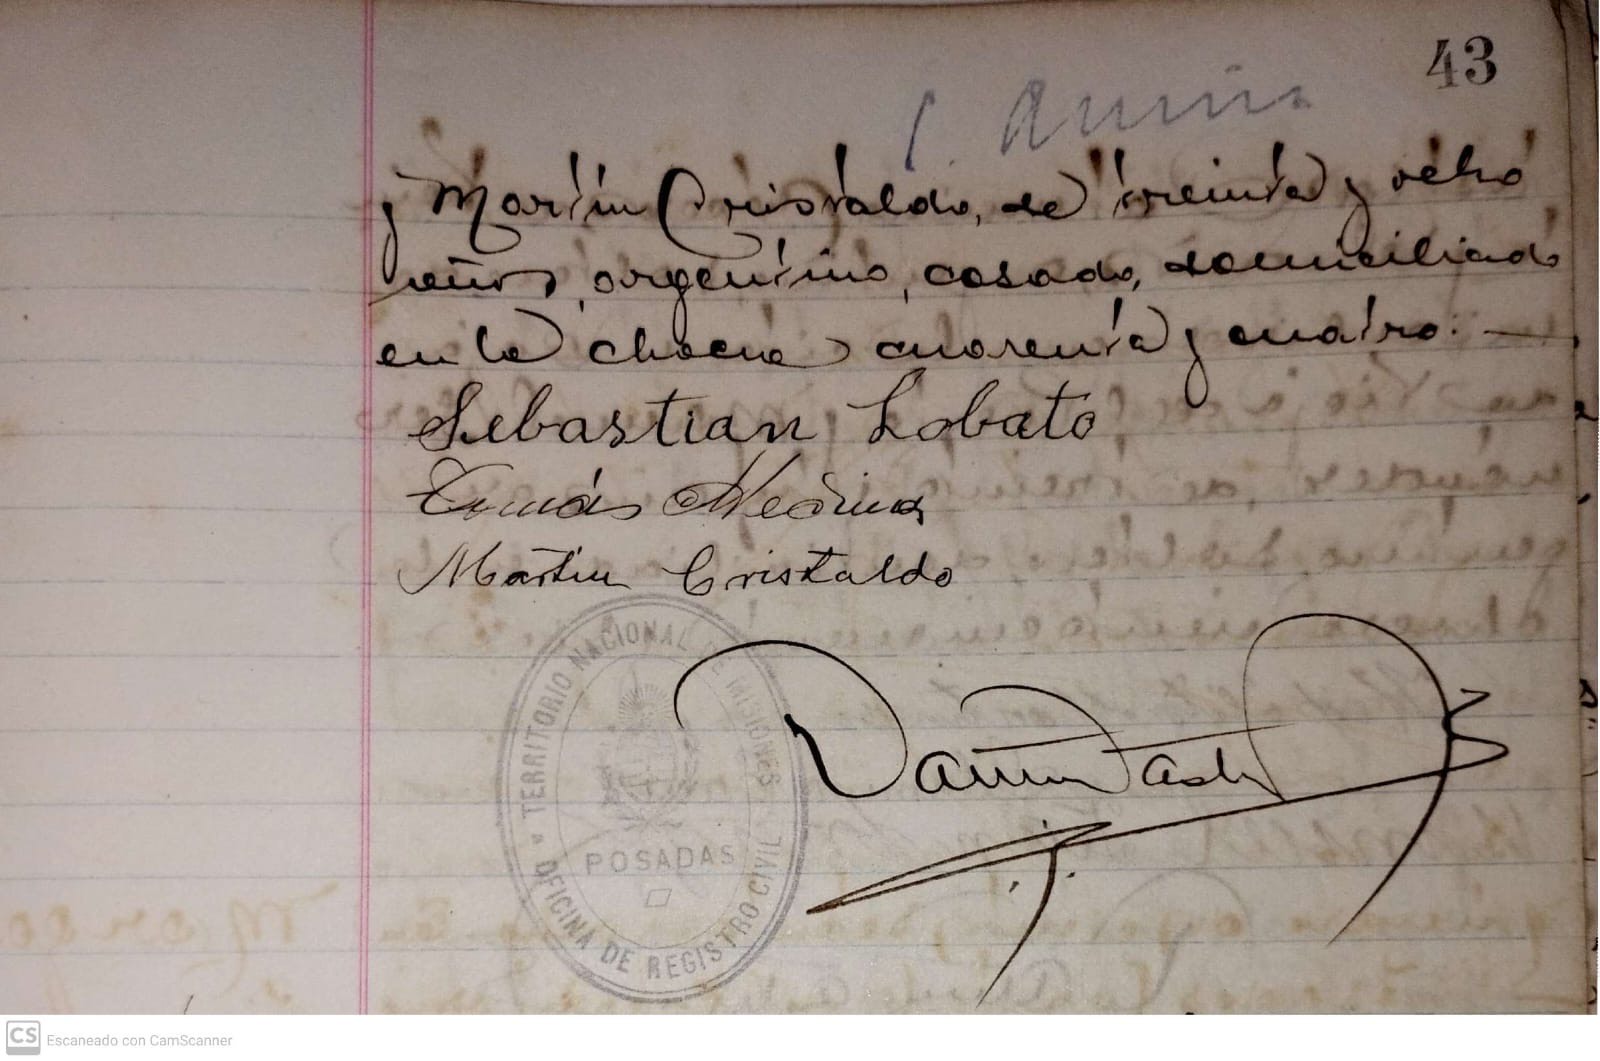 43
y Martin Cristaldo, de treinta y ocho
años, argentino, casado, domiciliado
en la chacra cuarenta y cuatro. —
Sebastian Lobato
Tomás Medina
Martin Cristaldo
TERRITORIO NACIONAL DE MISIONES
POSADAS
OFICINA DE REGISTRO CIVIL
CS Escaneado con CamScanner